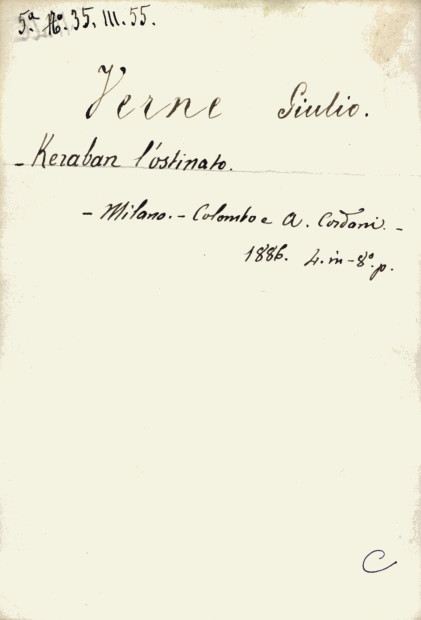 5.ª N.º 35. III. 55.
Verne Giulio.
- Keraban l'ostinato.
- Milano. - Colombo e A. Cordani. -
1886. 4. in-8.º p.
C